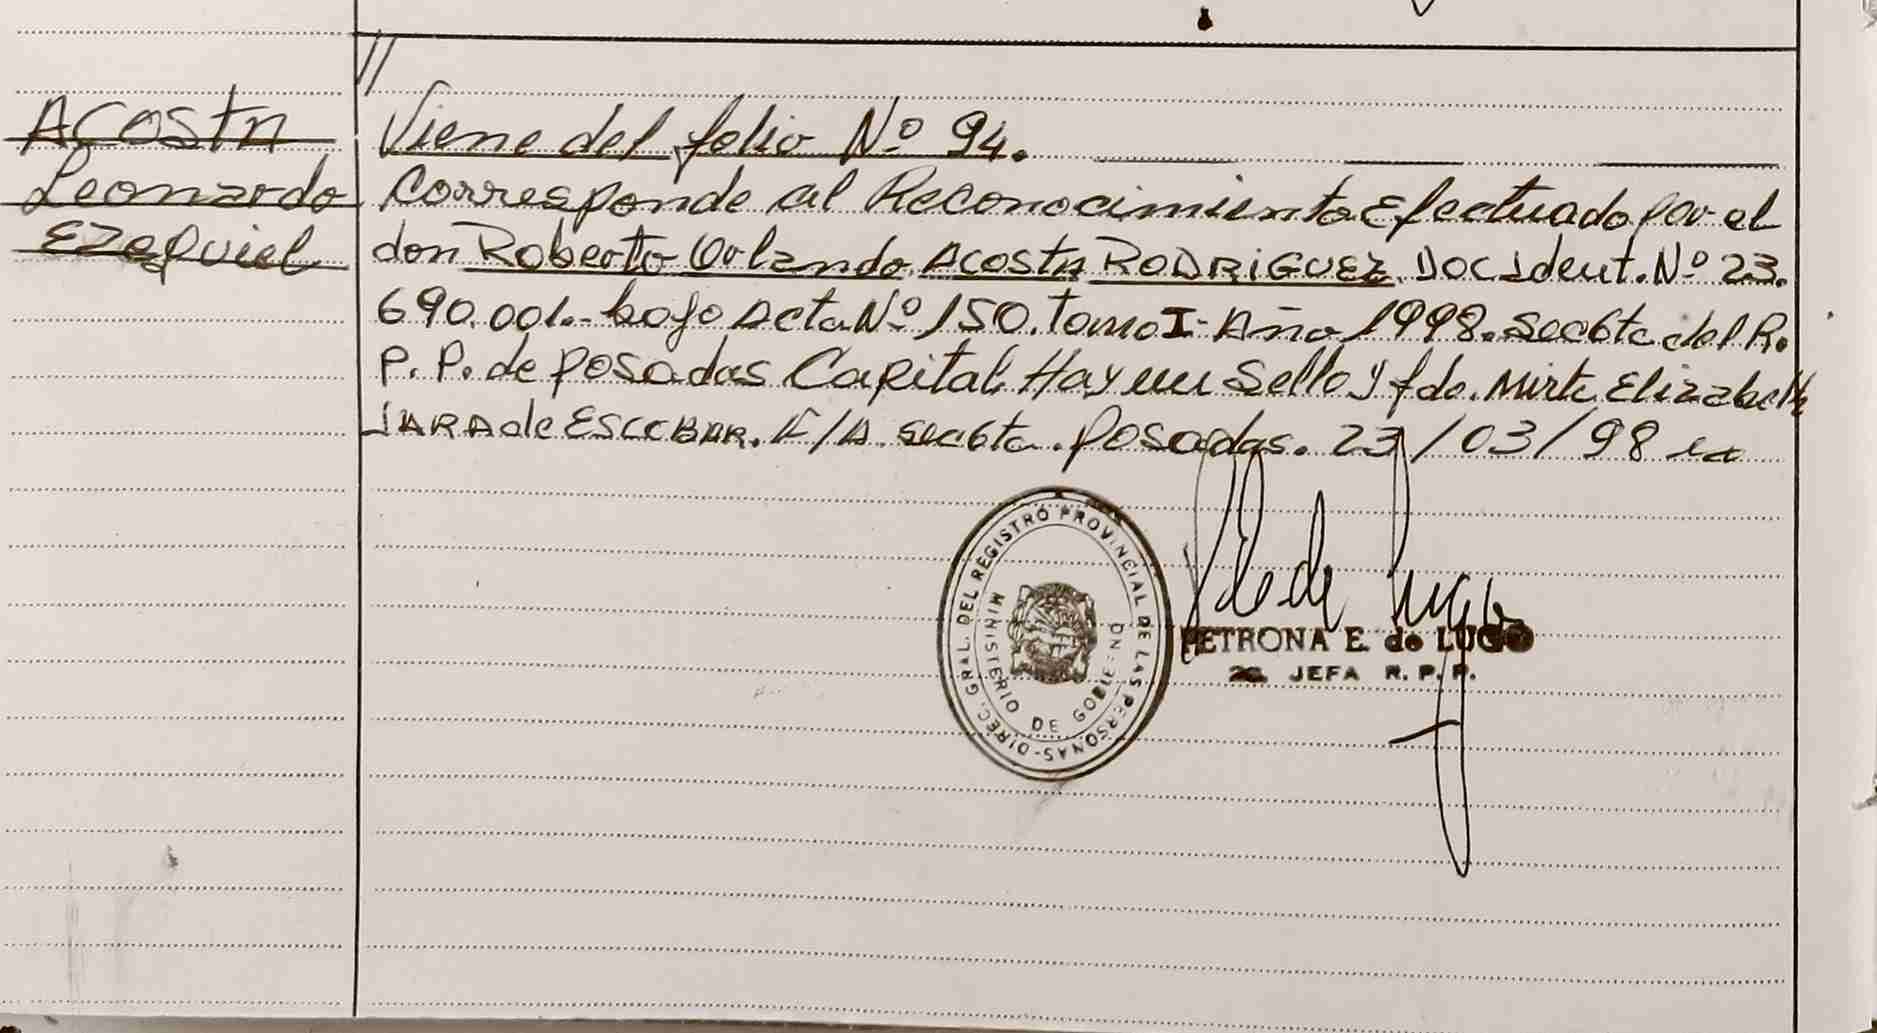 //
Acosta
Leonardo
Ezequiel
Viene del folio Nº 94.
Corresponde al Reconocimiento Efectuado por el
don Roberto Orlando ACOSTA RODRIGUEZ. Doc Ident. Nº 23.
690.001.- bajo Acta Nº 150. Tomo I- Año 1998. Secc6ta del R.
P. P. de Posadas Capital. Hay un Sello y fdo. Mirta Elizabeth
JARA de ESCOBAR. F/A. secc6ta. Posadas. 23/03/98
DIREC. GRAL. DEL REGISTRO PROVINCIAL DE LAS PERSONAS-
MINISTERIO DE GOBIERNO
PETRONA E. de LUGO
2a. JEFA R. P. P.